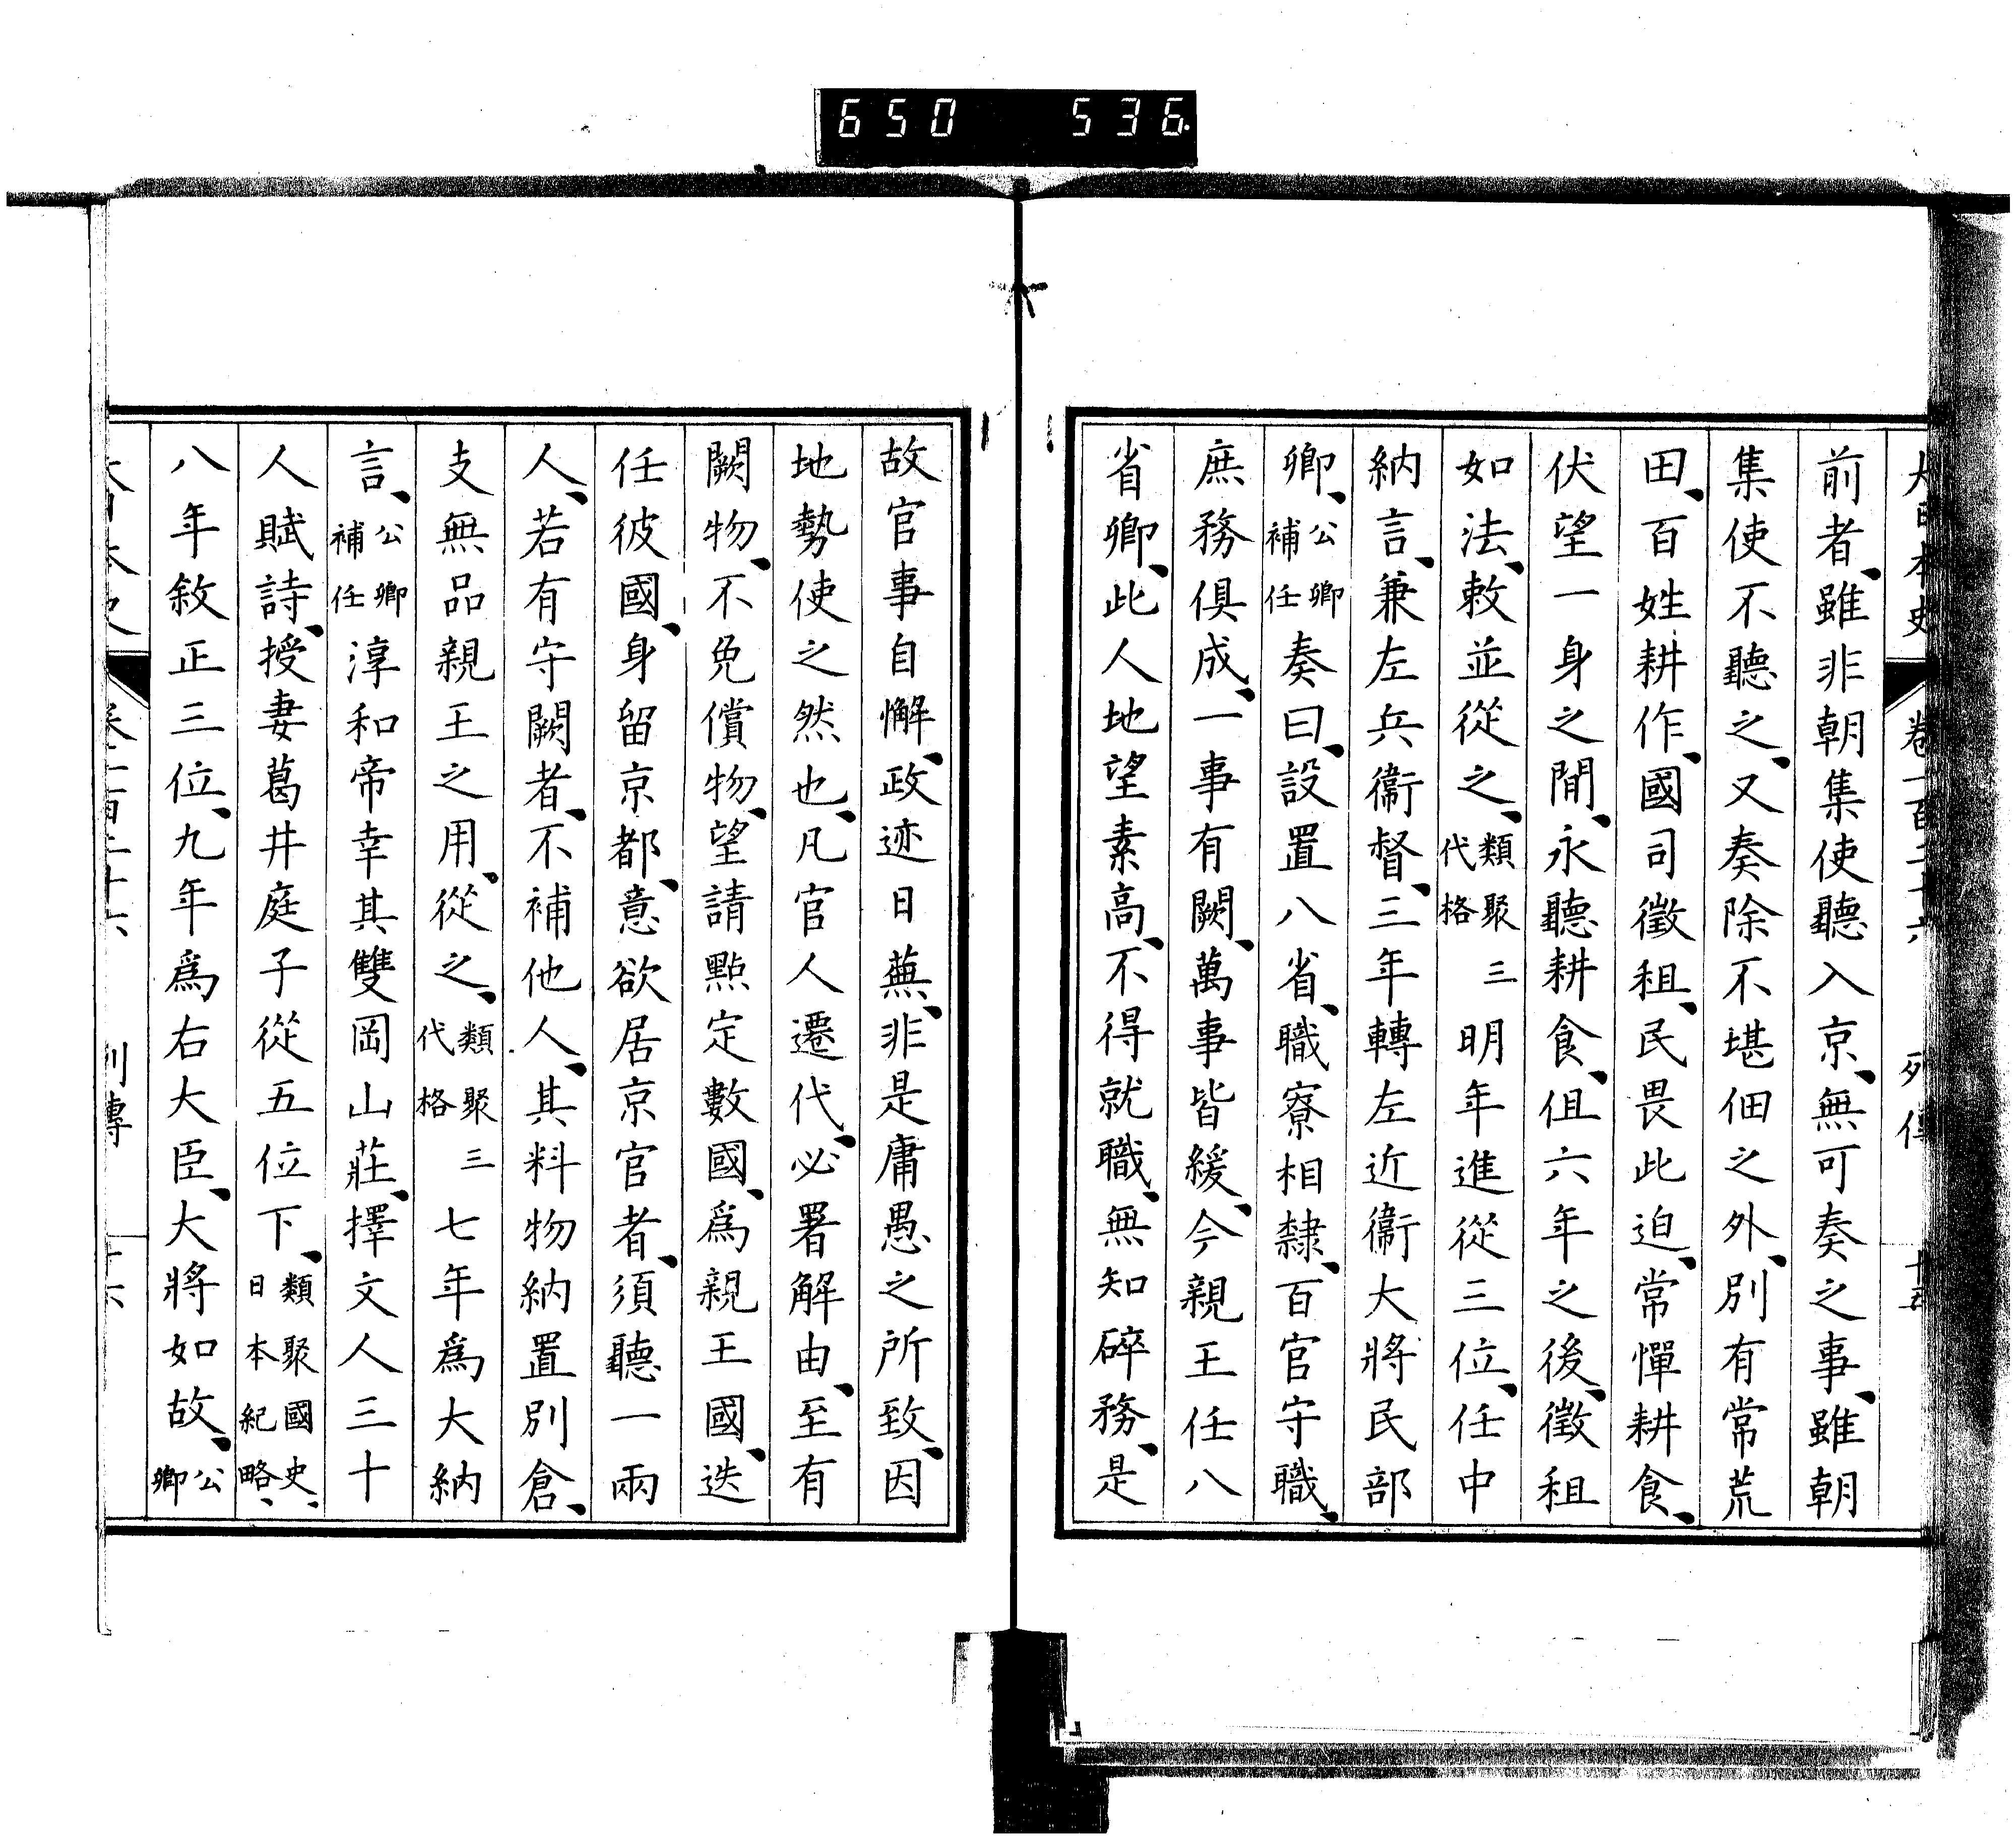 650 536
大日本史 卷一百二十六 列傳 十五
前者、雖非朝集使聽入京、無可奏之事、雖朝
集使不聽之、又奏除不堪佃之外、別有常荒
田、百姓耕作、國司徵租、民畏此迫、常憚耕食、
伏望一身之間、永聽耕食、但六年之後、徵租
如法、敕並從之、類聚三代格明年進從三位、任中
納言、兼左兵衞督、三年轉左近衞大將民部
卿、公卿補任奏曰、設置八省、職寮相隸、百官守職、
庶務俱成、一事有闕、萬事皆緩、今親王任八
省卿、此人地望素高、不得就職、無知碎務、是
故官事自懈、政迹日蕪、非是庸愚之所致、因
地勢使之然也、凡官人遷代、必署解由、至有
闕物、不免償物、望請點定數國、爲親王國、迭
任彼國、身留京都、意欲居京官者、須聽一兩
人、若有守闕者、不補他人、其料物納置別倉、
支無品親王之用、從之、類聚三代格七年爲大納
言、公卿補任淳和帝幸其雙岡山莊、擇文人三十
人賦詩、授妻葛井庭子從五位下、類聚國史、日本紀略、
八年敘正三位、九年爲右大臣、大將如故、公卿
大日本史 卷一百二十六 列傳 十六